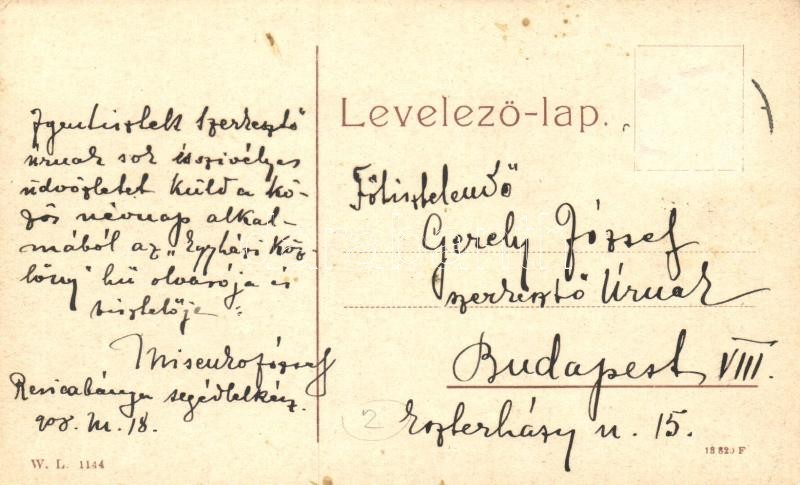 Igentisztelt Szerkesztő
úrnak sok és szivélyes
üdvözletet küld a kö-
zös névnap alkal-
mából az „Egyházi Köz-
löny" hű olvasója és
tisztelője
József
Resicabánya segédlelkész.
908. III. 18.
W. L. 1144
Levelező-lap.
Főtisztelendő
Gerely József
szerkesztő Úrnak
Budapest VIII.
Eszterházy u. 15.
2
13 820 F